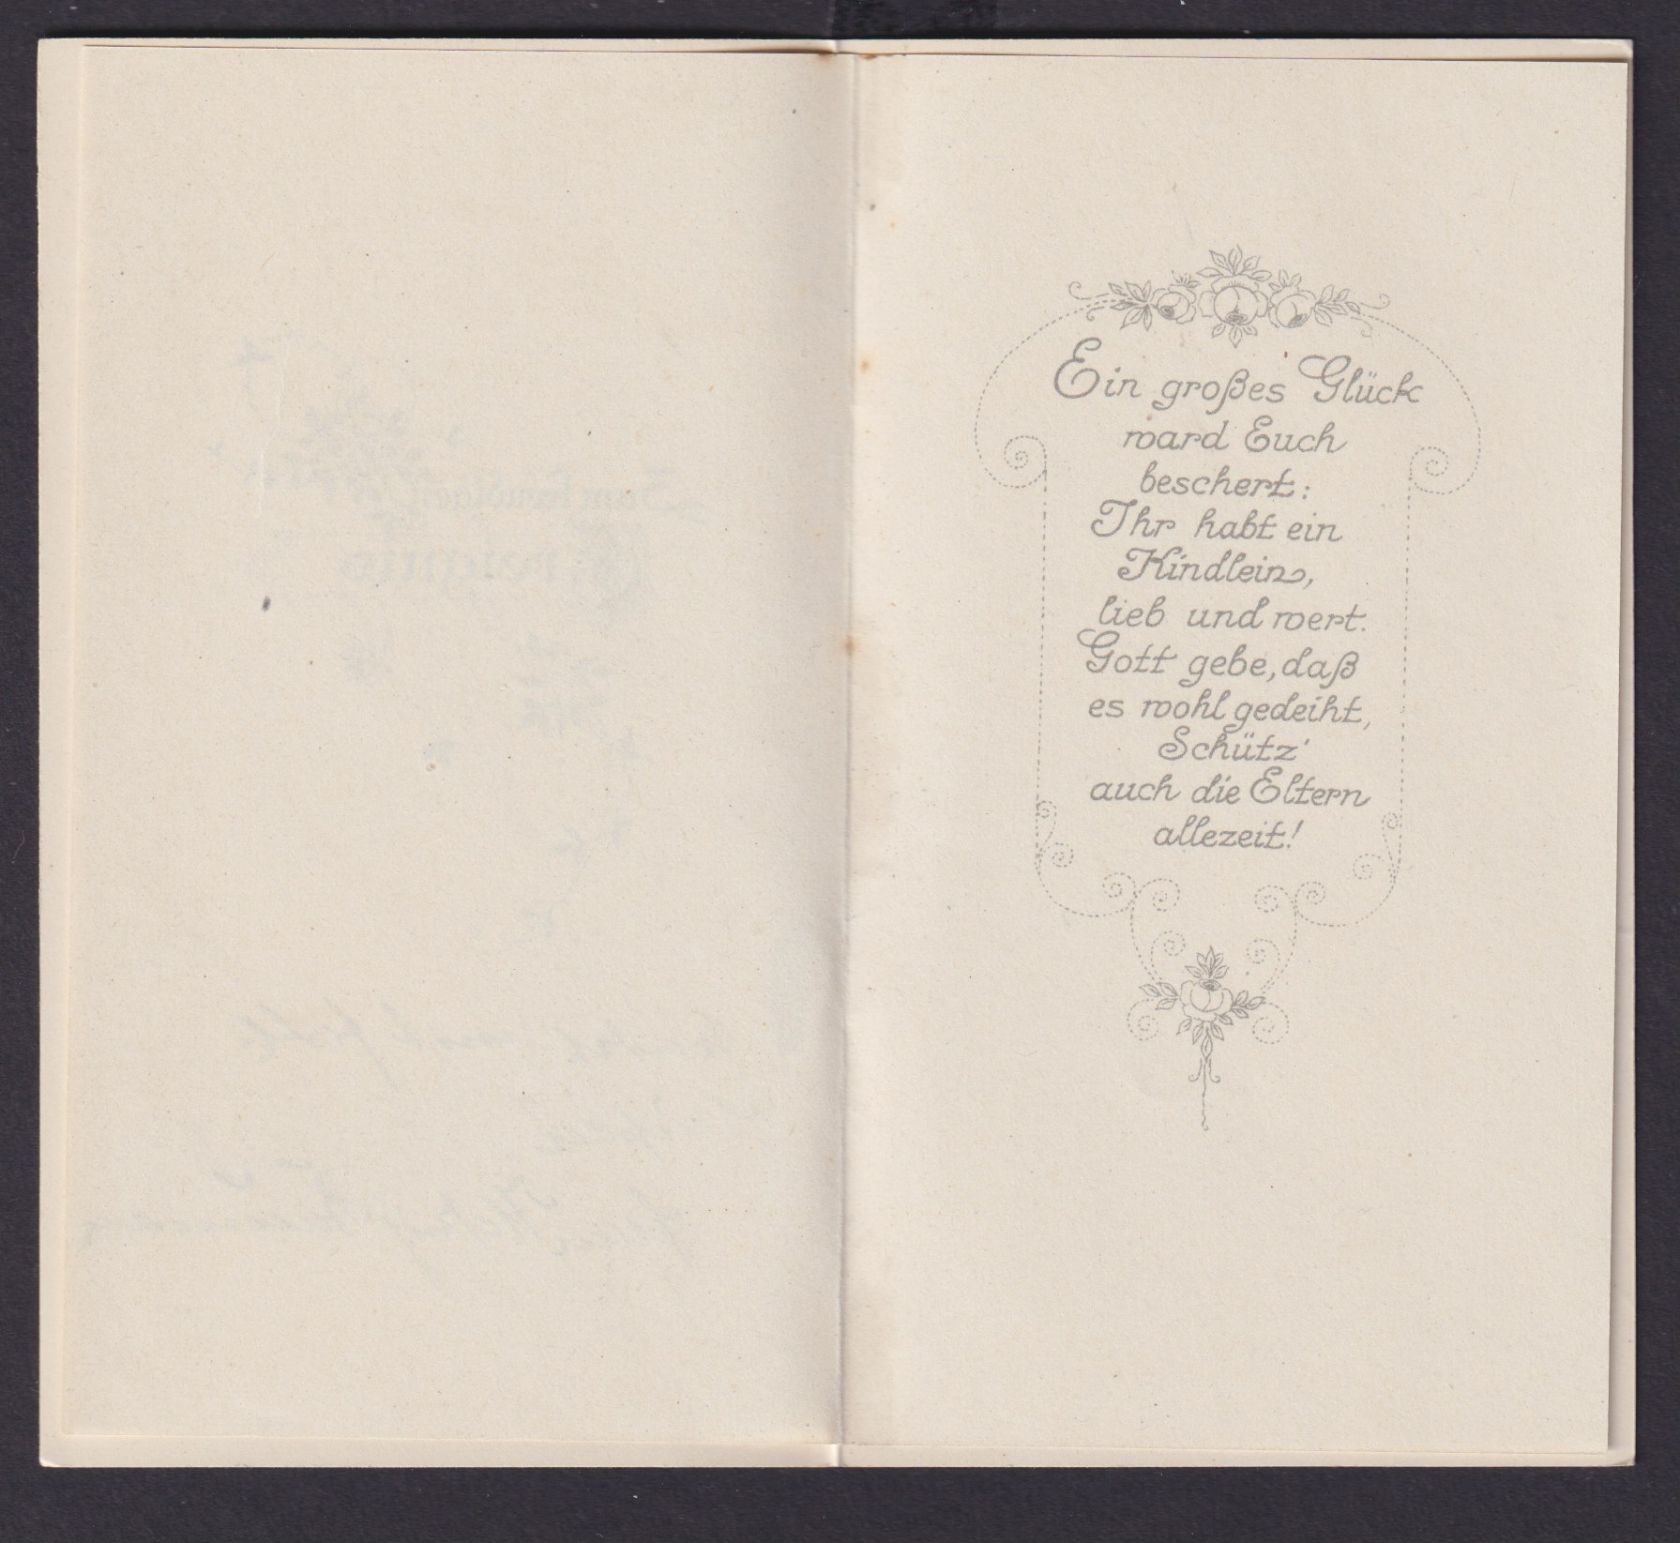 Ein großes Glück
ward Euch
beschert:
Ihr habt ein
Kindlein,
lieb und wert.
Gott gebe, daß
es wohl gedeiht,
Schütz'
auch die Eltern
allezeit!